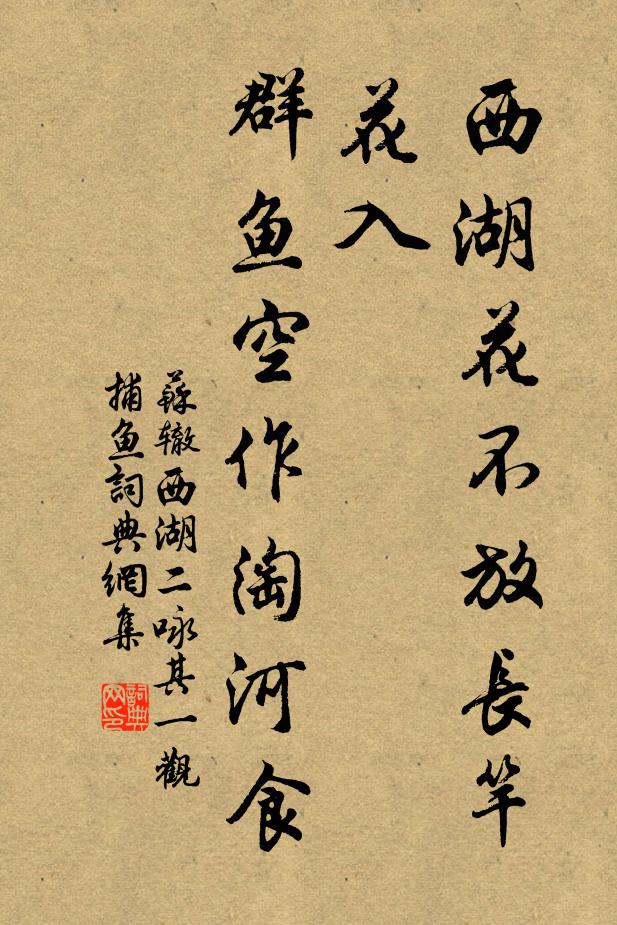 西湖花不放長竿
花入
群魚空作淘河食
蘇辙西湖二咏其一觀
捕魚詞典網集
詞典
网印